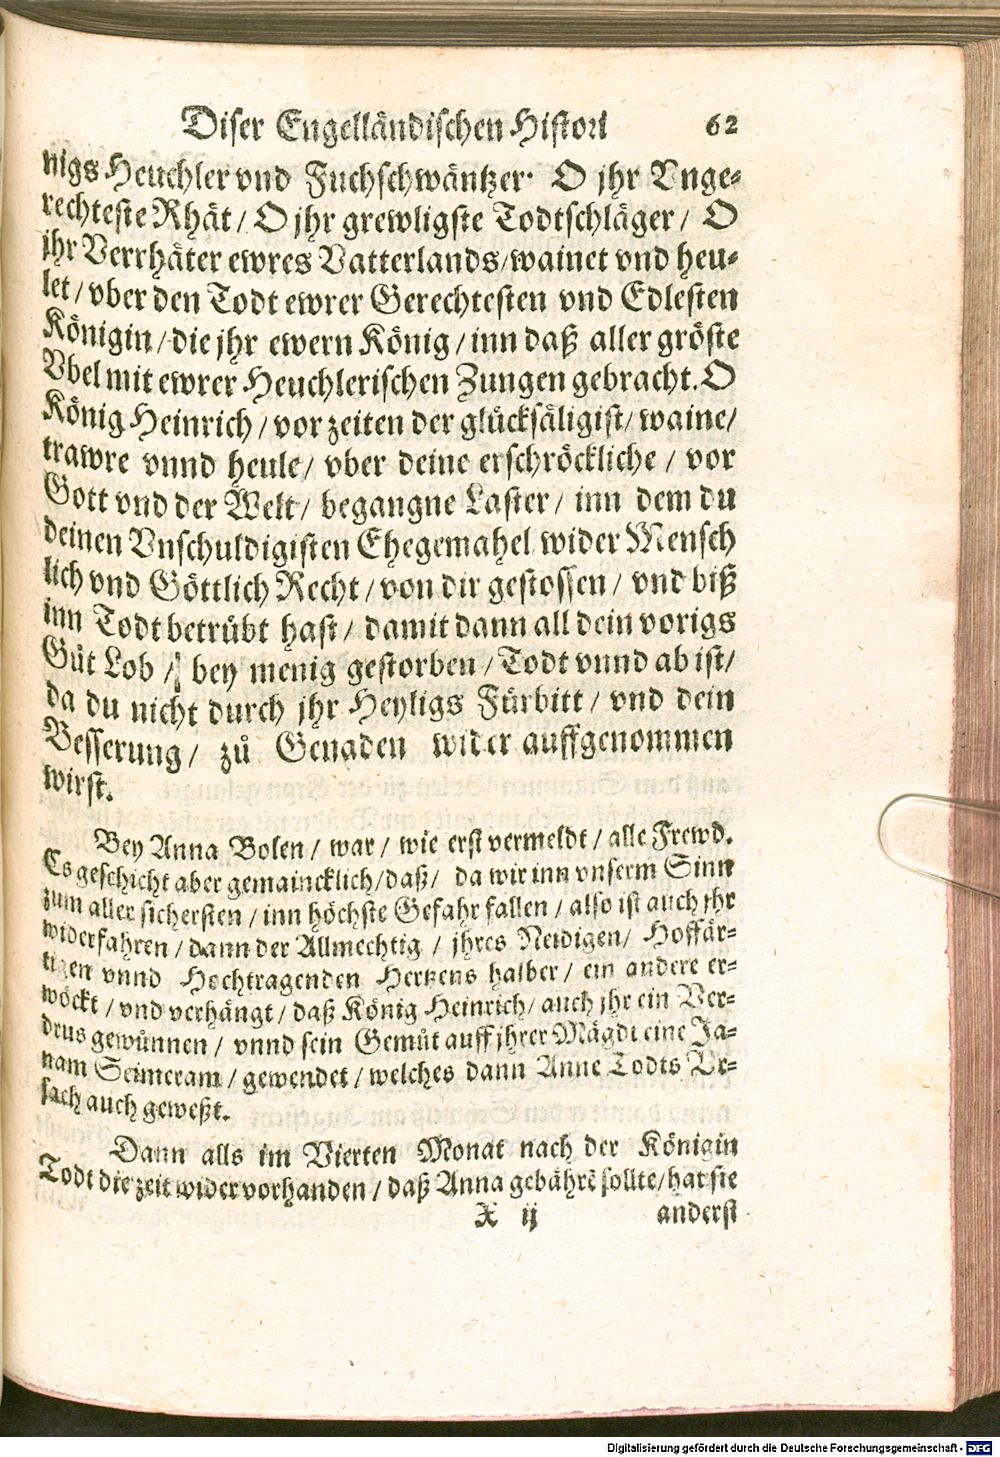 Diser Engelländischen Histori 62
nigs Heuchler vnd Fuchschwäntzer. O jhr Vnge-
rechteste Rhät / O jhr grewligste Todtschläger / O
jhr Verrhäter ewres Vatterlands / wainet vnd heu-
let / vber den Todt ewrer Gerechtesten vnd Edlesten
Königin / die jhr ewern König / inn daß aller gröste
Vbel mit ewrer Heuchlerischen Zungen gebracht. O
König Heinrich / vor zeiten der glücksäligist / waine /
trawre vnnd heule / vber deine erschröckliche / vor
Gott vnd der Welt / begangne Laster / inn dem du
deinen Vnschuldigisten Ehegemahel wider Mensch
lich vnd Göttlich Recht / von dir gestossen / vnd biß
inn Todt betrübt hast / damit dann all dein vorigs
Gůt Lob / bey menig gestorben / Todt vnnd ab ist /
da du nicht durch jhr Heyligs Fürbitt / vnd dein
Besserung / zů Genaden wider auffgenommen
wirst.
Bey Anna Bolen / war / wie erst vermeldt / alle Frewd.
Es geschicht aber gemaincklich / daß / da wir inn vnserm Sinn
zum aller sichersten / inn höchste Gefahr fallen / also ist auch jhr
widerfahren / dann der Allmechtig / jhres Neidigen / Hoffär-
tigen vnnd Hochtragenden Hertzens halber / ein andere er-
wöckt / vnd verhängt / daß König Heinrich / auch jhr ein Ver-
drus gewünnen / vnnd sein Gemůt auff jhrer Mägdt eine Ja-
nam Seimeram / gewendet / welches dann Anne Todts Vr-
sach auch geweßt.
Dann alls im Vierten Monat nach der Königin
Todt die zeit wider vorhanden / daß Anna gebährẽ sollte / hat sie
X ij anderst
Digitalisierung gefördert durch die Deutsche Forschungsgemeinschaft - DFG